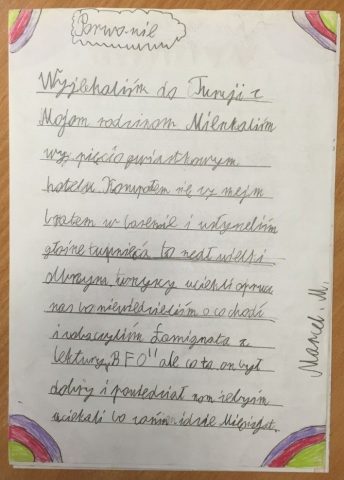 Porwanie
Wyjehaliśm do Turcji z
Mojom rodzinom Mieszkaliśm
w pięcio gwiastkowym
hotelu. Kompałem się z mojm
bratem w basenie i usłyszeliśm
głośne tupnięcia to był wielki
olbrzym turyscy uciekli oprucz
nas bo niewiedzieliśm o co chodzi
i zobaczyliśm
lektury „BFO" ale co to on był
dobry i powiedział nam żebyśm
uciekali bo za nim idzie
Marcel. M.